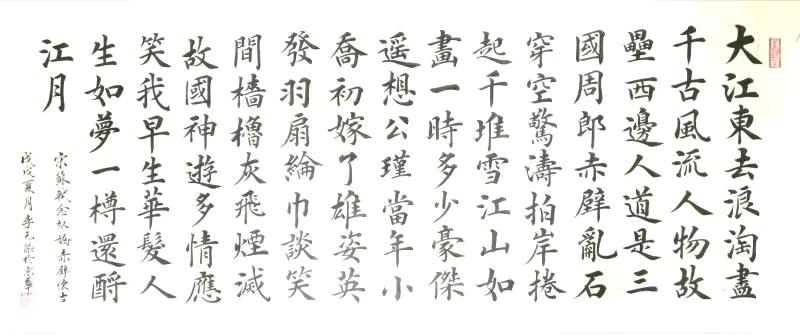 大江東去浪淘盡
千古風流人物故
壘西邊人道是三
國周郎赤壁亂石
穿空驚濤拍岸捲
起千堆雪江山如
畫一時多少豪傑
遥想公瑾當年小
喬初嫁了雄姿英
發羽扇綸巾談笑
間檣櫓灰飛煙滅
故國神遊多情應
笑我早生華髮人
生如夢一樽還酹
江月
宋蘇軾念奴嬌赤壁懷古
戊戌夏月李元於京華